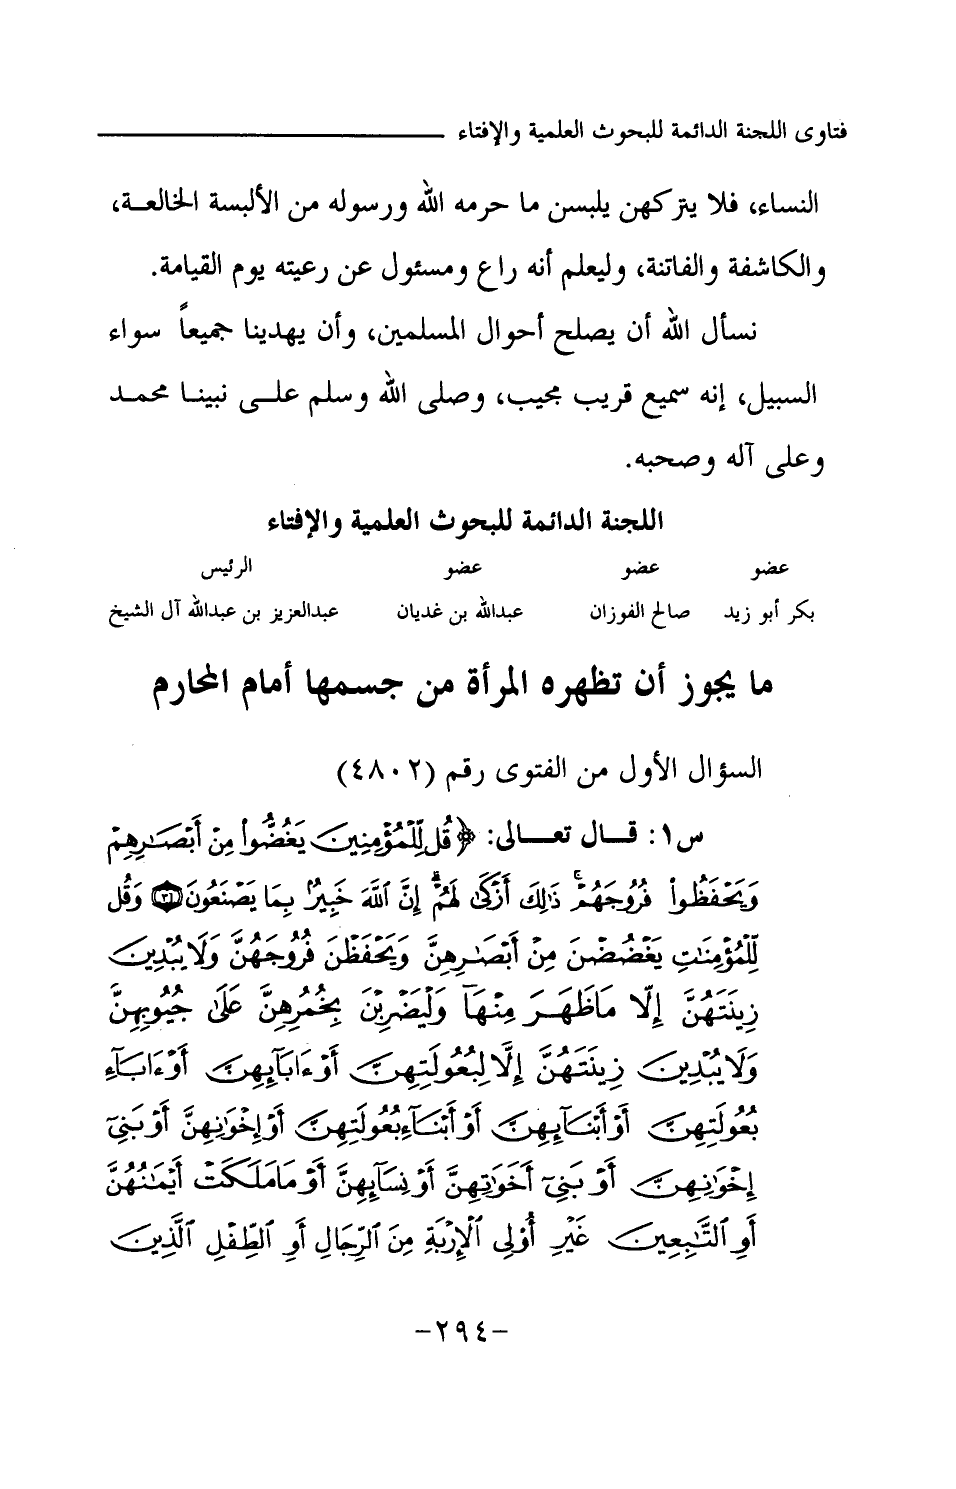 فتاوى اللجنة الدائمة للبحوث العلمية والإفتاء
النساء، فلا يتركهن يلبسن ما حرمه الله ورسوله من الألبسة الخالعـة،
والكاشفة والفاتنة، وليعلم أنه راع ومسئول عن رعيته يوم القيامة.
نسأل الله أن يصلح أحوال المسلمين، وأن يهدينا جميعاً سواء
السبيل، إنه سميع قريب مجيب، وصلى الله وسلم علـى نبينـا محمـد
وعلى آله وصحبه.
اللجنة الدائمة للبحوث العلمية والإفتاء
عضو عضو عضو الرئيس
بكر أبو زيد صالح الفوزان عبدالله بن غديان عبدالعزيز بن عبدالله آل الشيخ
ما يجوز أن تظهره المرأة من جسمها أمام المحارم
السؤال الأول من الفتوى رقم (٤٨٠٢)
س١: قـال تعـالى: ﴿قُل لِّلْمُؤْمِنِينَ يَغُضُّوا۟ مِنْ أَبْصَـٰرِهِمْ
وَيَحْفَظُوا۟ فُرُوجَهُمْ ۚ ذَٰلِكَ أَزْكَىٰ لَهُمْ ۗ إِنَّ ٱللَّهَ خَبِيرٌۢ بِمَا يَصْنَعُونَ ٣٠ وَقُل
لِّلْمُؤْمِنَـٰتِ يَغْضُضْنَ مِنْ أَبْصَـٰرِهِنَّ وَيَحْفَظْنَ فُرُوجَهُنَّ وَلَا يُبْدِينَ
زِينَتَهُنَّ إِلَّا مَا ظَهَرَ مِنْهَا ۖ وَلْيَضْرِبْنَ بِخُمُرِهِنَّ عَلَىٰ جُيُوبِهِنَّ
وَلَا يُبْدِينَ زِينَتَهُنَّ إِلَّا لِبُعُولَتِهِنَّ أَوْ ءَابَآئِهِنَّ أَوْ ءَابَآءِ
بُعُولَتِهِنَّ أَوْ أَبْنَآئِهِنَّ أَوْ أَبْنَآءِ بُعُولَتِهِنَّ أَوْ إِخْوَٰنِهِنَّ أَوْ بَنِىٓ
إِخْوَٰنِهِنَّ أَوْ بَنِىٓ أَخَوَٰتِهِنَّ أَوْ نِسَآئِهِنَّ أَوْ مَا مَلَكَتْ أَيْمَـٰنُهُنَّ
أَوِ ٱلتَّـٰبِعِينَ غَيْرِ أُو۟لِى ٱلْإِرْبَةِ مِنَ ٱلرِّجَالِ أَوِ ٱلطِّفْلِ ٱلَّذِينَ
-٢٩٤-